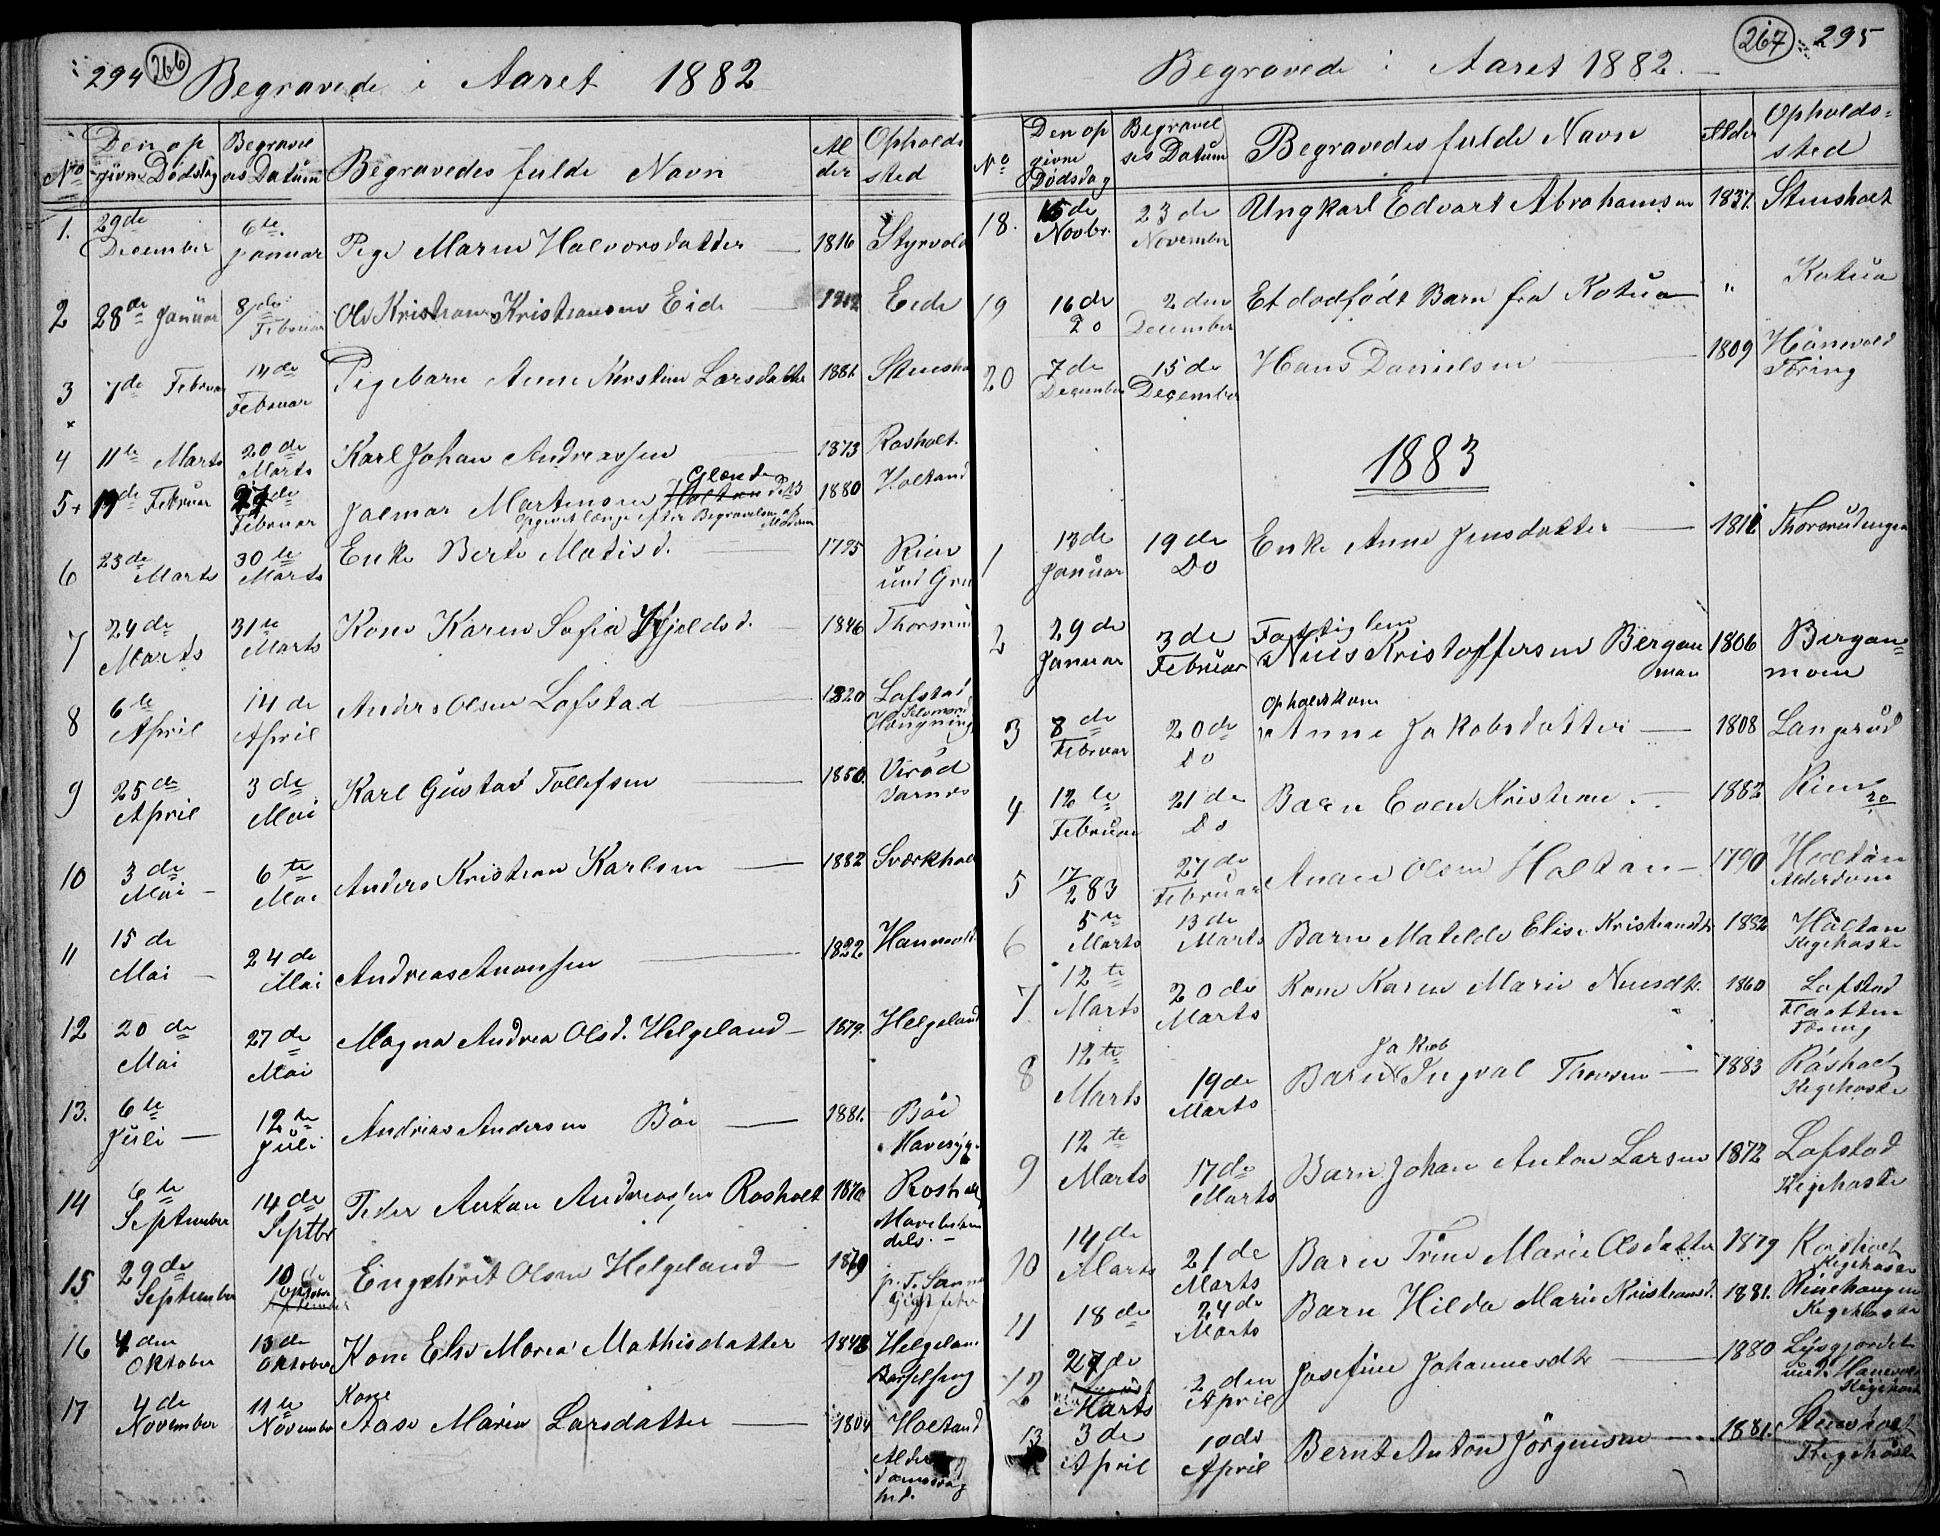 294 266 Begravede i Aaret 1882
No Den opgivne Dødsdag Begravelses Datum Begravedes fulde Navn Alder Opholdssted
1. 29de December 6te Januar Pige Maren Halvorsdatter 1816 Styrvold
2 28de Januar 8de Februar Ole Kristian Kristiansen Eide Eide
3 7de Februar 14de Februar Pigebarn Anne Kirstine Larsdatter 1881 Stensho
4 11te Marts 20de Marts Karl Johan Andreassen 1873 Rosholt
5+ Februar Februar Jalmar Martinsen Glænde 1880 Holtand
Opgivet længe efter Begravelsen af Moderen
6 23de Marts 30te Marts Enke Berte Matisd. 1795 Rien
7 24de Marts 31te Marts Kone Karen Sofia Kjeldsd. 1846
8 6te April 14de April Anders Olsen Lofstad 1820 Lofstad Selvmord Hængning
9 25de April 3de Mai Karl Gustav Tollefsen 1850 Verød Jarnes
10 3de Mai 6te Mai Anders Kristian Karlsen 1882 Sværkholt
11 15de Mai 24de Mai Andreas Aronsen 1822
12 20de Mai 27de Mai Magna Andrea Olsd. Helgeland 1879 Helgeland
13. 6te Juli 12te Juli Andreas Andersen Böe 1881. Böe Mavesyge
14 6te September 14de Septbr Peder Antan Andreassen Rosholt 1870 Rosholt
15 29de September 10 Oktober Engebret Olsen Helgeland p. T.
16 4den Oktober 13de Oktober Kone Else Maria Mathisdatter Helgeland Barselseng
17 4de November 11te November Kone Aase Maria Larsdatter 1804 Holtand Alderdomssvaghed.
267 295
Begravede i Aaret 1882.
No Den opgivne Dødsdag Begravelses Datum Begravedes fulde Navn Alder Opholdssted
18. 15de Novbr. 23de November Ungkarl Edvart Abrahamsen 1837. Stensholt
19 16de Do 2den December Et dødfødt Barn fra Kotua " Kotua
20 7de December 15de December Hans Danielsen 1809 Hanevold Tæring
1883
1 13de Januar 19de Do Enke Anne Jensdatter Thorsrudengen
2 29de Januar 3de Februar Fattiglem Nils Kristoffersen Berganmoen 1806 Berganmoen
3 8de Februar 20de Do Opholdskone Anne Jakobsdatter 1808 Langerud
4 12te Februar 21de Do Barn Even Kristian 1882 Rien
5 17/2 83 27de Februar Anane Olsen Holtan 1790 Holtan Alderdom
6 5te Marts 13de Marts Barn Matilde Elise Kristiansdt. 1882 Holtan Kighoste
7 12te Marts 20de Marts Kone Karen Marie Nilsdt. 1860 Lofstad Flaatten Tæring
8 12te Marts 19de Marts Barn Jakob Ingval Thorsen 1883 Rosholt Kighoste
9 12te Marts 17de Marts Barn Johan Anton Larsen 1872 Lofstad Kighoste
10 14de Marts 21de Marts Barn Trine Marie Olsdatter 1879 Rosholt Kighoste
11 18de 24de Marts Barn Hilda Marie Kristiansd. 1881. Kighoste
12 27de Marts 2den April Josefine Johannesdt. 1880 und. Hanevold Kighoste
13 3de April 10de April Bernt Anton Jörgensen 1881. Stensholt Kighoste